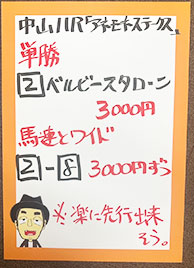 中山11R「アネモネステークス」
単勝
2 ベルビースタローン
3000円
馬連とワイド
2-8 3000円ずつ
※楽に先行出来
そう。